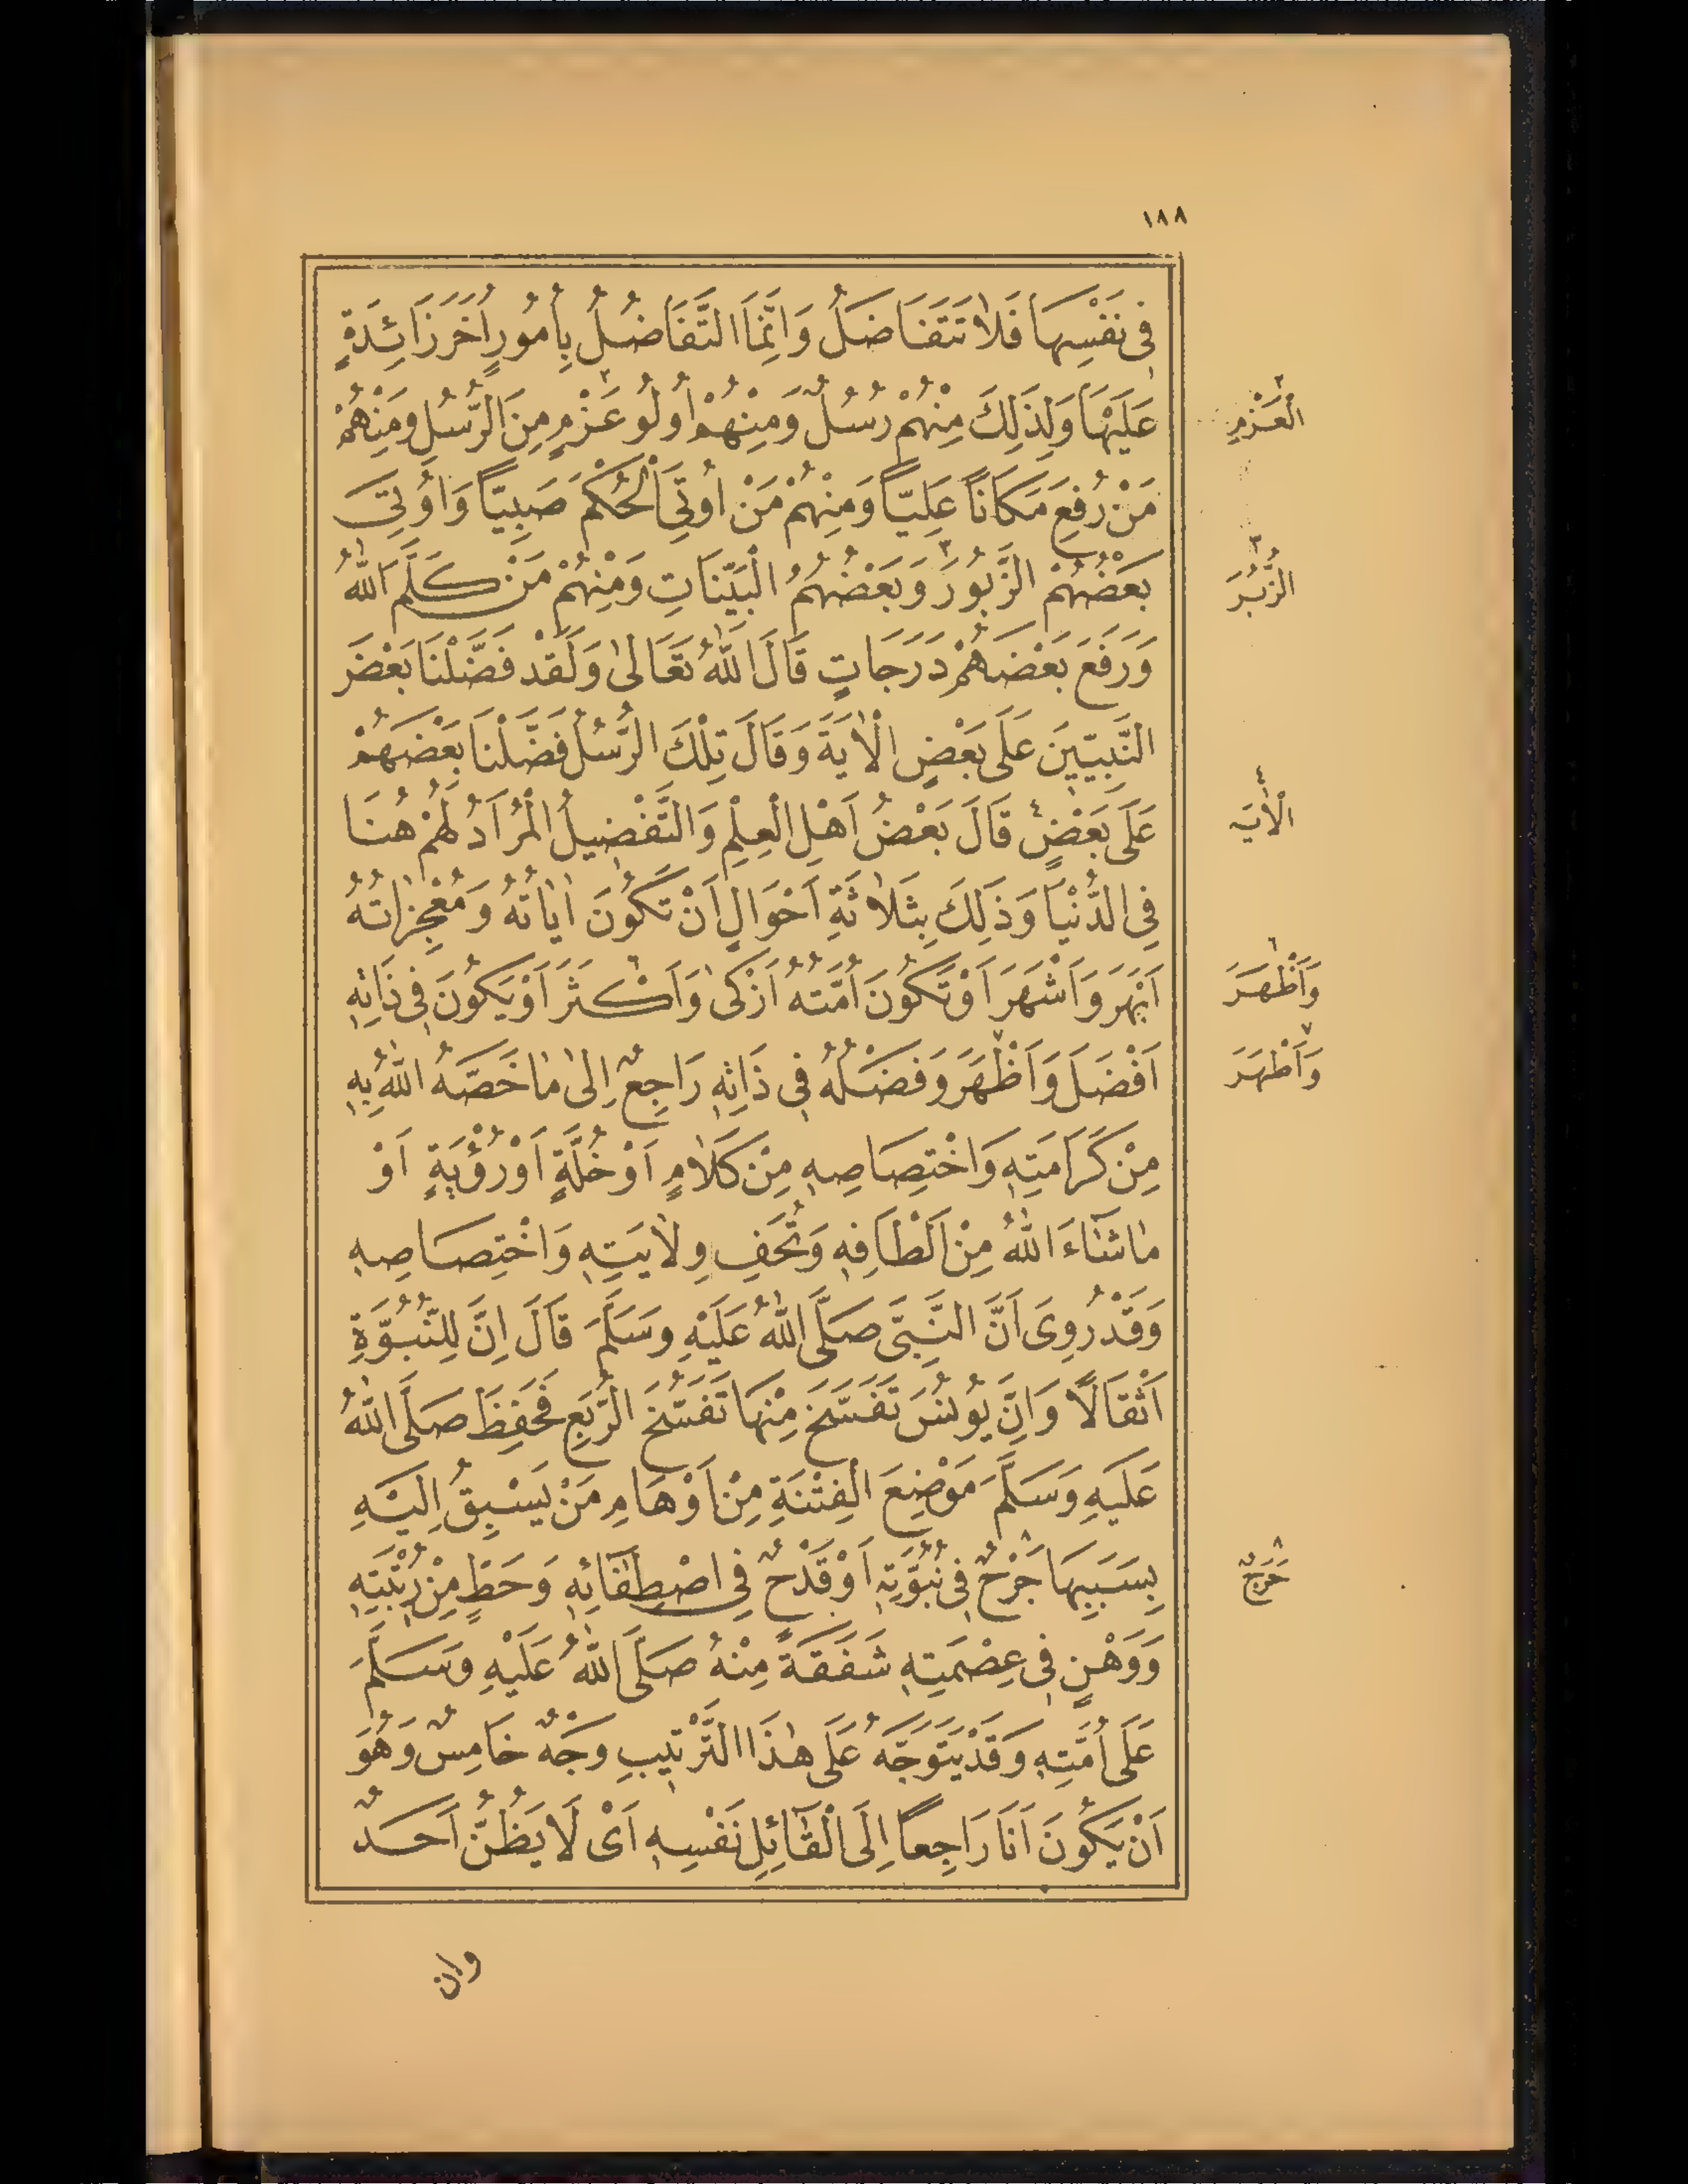 ١٨٨
فِى نَفْسِهَا فَلَا تَتَفَاضَلُ وَاِنَّمَا التَّفَاضُلُ بِاُمُورٍ اُخَرَ زَائِدَةٍ
عَلَيْهَا وَلِذَلِكَ مِنْهُمْ رُسُلٌ وَمِنْهُمْ اُولُو عَزْمٍ٢ مِنَ الرُّسُلِ وَمِنْهُمْ
الْعَزْمِ٢
مَنْ رُفِعَ مَكَانًا عَلِيًّا وَمِنْهُمْ مَنْ اُوتِيَ الْحُكْمَ صَبِيًّا وَاُوتِىَ
بَعْضُهُمْ الزَّبُورَ٣ وَبَعْضُهُمُ الْبَيِّنَاتِ وَمِنْهُمْ مَنْ كَلَّمَ اللّٰهُ
الزُّبُرَ٣
وَرَفَعَ بَعْضَهُمْ دَرَجَاتٍ قَالَ اللّٰهُ تَعَالٰى وَلَقَدْ فَضَّلْنَا بَعْضَ
النَّبِيّيِنَ عَلَى بَعْضٍ الْاٰيَةَ وَقَالَ تِلْكَ الرُّسُلُ فَضَّلْنَا بَعْضَهُمْ
عَلَى بَعْضٍ٤ قَالَ بَعْضُ اَهْلِ الْعِلْمِ وَالتَّفْضِيلُ الْمُرَادُ لَهُمْ هُنَا
الْاٰيَه٤
فِى الدُّنْيَا وَذَلِكَ بِثَلَاثَةِ اَحْوَالٍ اَنْ تَكُونَ اٰيَاتُهُ وَمُعْجِزَاتُهُ
اَبْهَرَ وَاَشْهَرَ اَوْ تَكُونَ اُمَّتُهُ اَزْكٰى وَاَكْثَرَ٦ اَوْ يَكُونَ فِى ذَاتِهِ
وَاَظْهَرَ٦
اَفْضَلَ وَاَظْهَرَ٧ وَفَضْلُهُ فِى ذَاتِهِ رَاجِعٌ اِلٰى مَا خَصَّهُ اللّٰهُ بِهِ
وَاَطْهَرَ٧
مِنْ كَرَامَتِهِ وَاخْتِصَاصِهِ مِنْ كَلَامٍ اَوْ خُلَّةٍ اَوْ رُؤْيَةٍ اَوْ
مَا شَاءَ اللّٰهُ مِنْ اَلْطَافِهِ وَتُحَفِ وِلَايَتِهِ وَاخْتِصَاصِهِ
وَقَدْ رُوِىَ اَنَّ النَّبِىَّ صَلَّى اللّٰهُ عَلَيْهِ وَسَلَّمَ قَالَ اِنَّ لِلنُّبُوَّةِ
اَثْقَالًا وَاِنَّ يُونُسَ تَفَسَّخَ مِنْهَا تَفَسُّخَ الرُّبَعِ فَحَفِظَ صَلَّى اللّٰهُ
عَلَيهِ وَسَلَّمَ مَوْضِعَ الْفِتْنَةِ مِنْ اَوْهَامِ مَنْ يَسْبِقُ اِلَيْهِ
بِسَبَبِهَا جَرْحٌ٨ فِى نُبُوَّتِهِ اَوْ قَدْحٌ فِى اصْطِفَائِهِ وَحَطٍّ مِنْ رُتْبَتِهِ
حَرَجٌ٨
وَوَهْنٍ فِى عِصْمَتِهِ شَفَقَةً مِنْهُ صَلَّى اللّٰهُ عَلَيْهِ وَسَلَّمَ
عَلَى اُمَّتِهِ وَقَدْ يَتَوَجَّهُ عَلَى هٰذَا التَّرْتِيبِ وَجْهٌ خَامِسٌ وَهُوَ
اَنْ يَكُونَ اَنَا رَاجِعًا اِلَى الْقَائِلِ نَفْسِهِ اَىْ لَا يَظُنُّ اَحَدٌ
وان